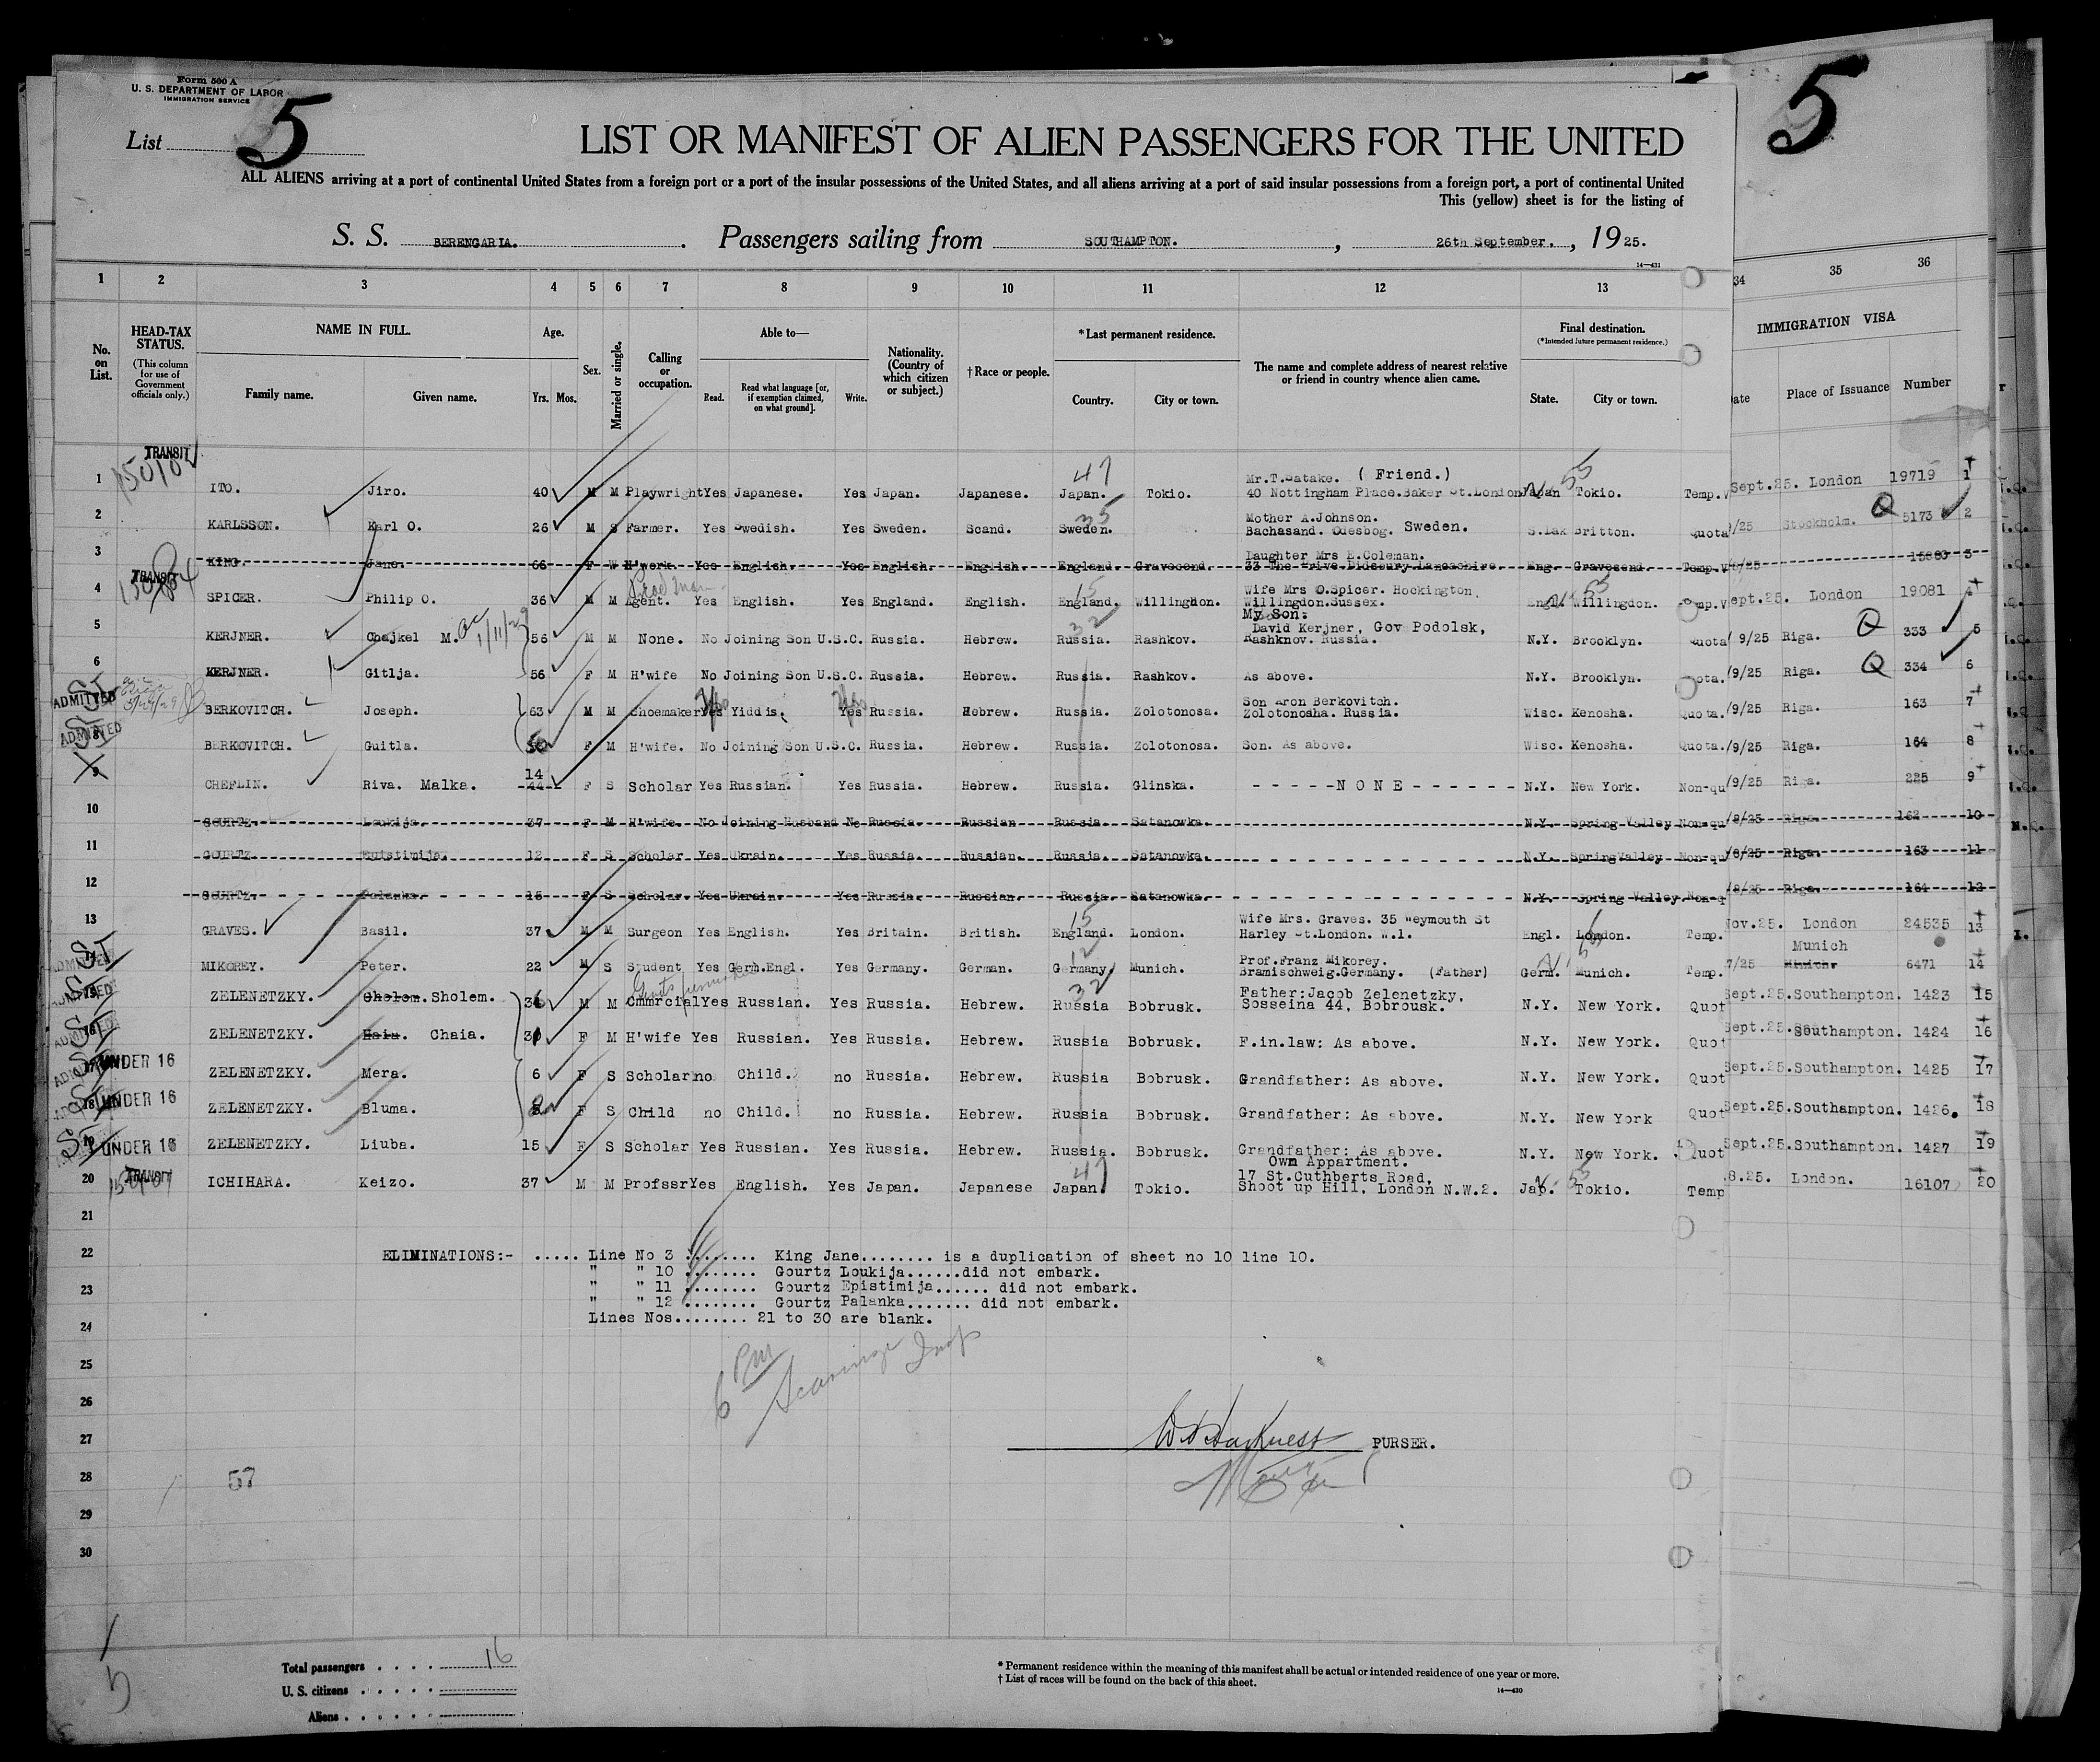 Form 500 A
U. S. DEPARTMENT OF LABOR
IMMIGRATION SERVICE
List 5
5
LIST OR MANIFEST OF ALIEN PASSENGERS FOR THE UNITED
ALL ALIENS arriving at a port of continental United States from a foreign port or a port of the insular possessions of the United States, and all aliens arriving at a port of said insular possessions from a foreign port, a port of continental United
This (yellow) sheet is for the listing of
S. S. BERENGARIA. Passengers sailing from SOUTHAMPTON. , 26th September. , 1925.
14—431
1 2 3 4 5 6 7 8 9 10 11 12 13 34 35 36
No. on List.
HEAD-TAX STATUS.
(This column for use of Government officials only.)
NAME IN FULL.
Family name. Given name.
Age.
Yrs. Mos.
Sex.
Married or single.
Calling or occupation.
Able to—
Read. Read what language [or, if exemption claimed, on what ground]. Write.
Nationality. (Country of which citizen or subject.)
†Race or people.
*Last permanent residence.
Country. City or town.
The name and complete address of nearest relative or friend in country whence alien came.
Final destination.
(*Intended future permanent residence.)
State. City or town.
IMMIGRATION VISA
Date Place of Issuance Number
TRANSIT
1 ITO. Jiro. 40 M M Playwright Yes Japanese. Yes Japan. Japanese. Japan. Tokio. Mr.T.Satake. (Friend.) 40 Nottingham Place.Baker St.London Japan Tokio. Temp.V Sept.25. London 19719 1
2 KARLSSON. Karl O. 26 M S Farmer. Yes Swedish. Yes Sweden. Scand. Sweden. Mother A.Johnson. Bachasand. Odesbog. Sweden. S.Dak Britton. Quota /25 Stockholm. Q 5173 2
3 KING. Jane. 66 F W H'work. Yes English. Yes English. English. England Gravesend. Daughter Mrs E.Coleman. 33 The Drive Didsbury Lancashire. Eng. Gravesend. Temp.V /25 15880 3
TRANSIT
4 SPICER. Philip O. 36 M M Agent. Yes English. Yes England. English. England. Willingdon. Wife Mrs O.Spicer. Hockington, Willingdon.Sussex. Engl. Willingdon. Temp.V ept.25. London 19081 4
5 KERJNER. Chajkel M. 1/11/29 56 M M None. No Joining Son U.S.C. Russia. Hebrew. Russia. Rashkov. My Son: David Kerjner, Gov Podolsk, Rashknov. Russia. N.Y. Brooklyn. Quota 9/25 Riga. Q 333 5
6 KERJNER. Gitlja. 56 F M H'wife No Joining Son U.S.C. Russia. Hebrew. Russia. Rashkov. As above. N.Y. Brooklyn. Quota. /9/25 Riga. Q 334 6
ADMITTED
7 BERKOVITCH. Joseph. 63 M M Shoemaker Yes Yiddis. Yes Russia. Hebrew. Russia. Zolotonosa. Son Aron Berkovitch. Zolotonosha. Russia. Wisc. Kenosha. Quota. /9/25 Riga. 163 7
ADMITTED
8 BERKOVITCH. Guitla. 50 F M H'wife. No Joining Son U.S.C. Russia. Hebrew. Russia. Zolotonosa. Son. As above. Wisc. Kenosha. Quota. /9/25 Riga. 164 8
9 CHEFLIN. Riva. Malka. 14 44 F S Scholar Yes Russian. Yes Russia. Hebrew. Russia. Glinska. -----NONE------ N.Y. New York. Non-qu /9/25 Riga. 225 9
10 GOURTZ. Loukija. 37 F M H'wife. No Joining Husband No Russia. Russian Russia. Satanowka. N.Y. Spring Valley Non-qu /8/25 Riga. 162 10
11 GOURTZ. Epistimija. 12 F S Scholar Yes Ukrain. Yes Russia. Russian. Russia. Satanowka. N.Y. Spring Valley Non-qu /8/25 Riga. 163 11
12 GOURTZ. Palanka. 15 F S Scholar. Yes Ukrain. Yes Russia. Russian. Russia. Satanowka. N.Y. Spring Valley Non-q /8/25 Riga. 164 12
13 GRAVES. Basil. 37 M M Surgeon Yes English. Yes Britain. British. England. London. Wife Mrs. Graves. 35 Weymouth St Harley St.London. W.1. Engl. London. Temp. Nov.25. London 24535 13
14 MIKOREY. Peter. 22 M S Student Yes Germ.Engl. Yes Germany. German. Germany. Munich. Prof.Franz Mikorey. Bramischweig.Germany. (Father) Germ. Munich. Temp. 7/25 Munich Munich. 6471 14
15 ZELENETZKY. Cholem. Sholem. 36 M M Cmmrcial Yes Russian. Yes Russia. Hebrew. Russia Bobrusk. Father:Jacob Zelenetzky, Sosseina 44, Bobrousk. N.Y. New York. Quot Sept.25.Southampton. 1423 15
16 ZELENETZKY. Haiu. Chaia. F M H'wife Yes Russian. Yes Russia. Hebrew. Russia Bobrusk. F.in.law: As above. N.Y. New York. Quot Sept.25. Southampton. 1424 16
17 UNDER 16 ZELENETZKY. Mera. 6 F S Scholar no Child. no Russia. Hebrew. Russia Bobrusk. Grandfather: As above. N.Y. New York. Quot Sept.25.Southampton. 1425 17
18 UNDER 16 ZELENETZKY. Bluma. F S Child no Child. no Russia. Hebrew. Russia Bobrusk. Grandfather: As above. N.Y. New York Quot Sept.25.Southampton. 1426. 18
19 UNDER 16 ZELENETZKY. Liuba. 15 F S Scholar Yes Russian. Yes Russia. Hebrew. Russia. Bobrusk. Grandfather: As above. N.Y. New York. Quot Sept.25.Southampton. 1427 19
TRANSIT
20 ICHIHARA. Keizo. 37 M M Profssr Yes English. Yes Japan. Japanese Japan. Tokio. Own Appartment. 17 St.Cuthberts Road, Shoot up Hill, London N.W.2. Jap. Tokio. Temp .8.25. London. 16107 20
21
22 ELIMINATIONS:- ..... Line No 3 ........ King Jane........ is a duplication of sheet no 10 line 10.
" " 10 ........ Gourtz Loukija......did not embark.
23 " " 11 ........ Gourtz Epistimija...... did not embark.
" " 12 ........ Gourtz Palanka....... did not embark.
24 Lines Nos........ 21 to 30 are blank.
25
26
27 PURSER.
28 57
29
30
Total passengers . . . . 16
U. S. citizens . . . . .
Aliens . . . . . .
* Permanent residence within the meaning of this manifest shall be actual or intended residence of one year or more.
† List of races will be found on the back of this sheet.
14—430